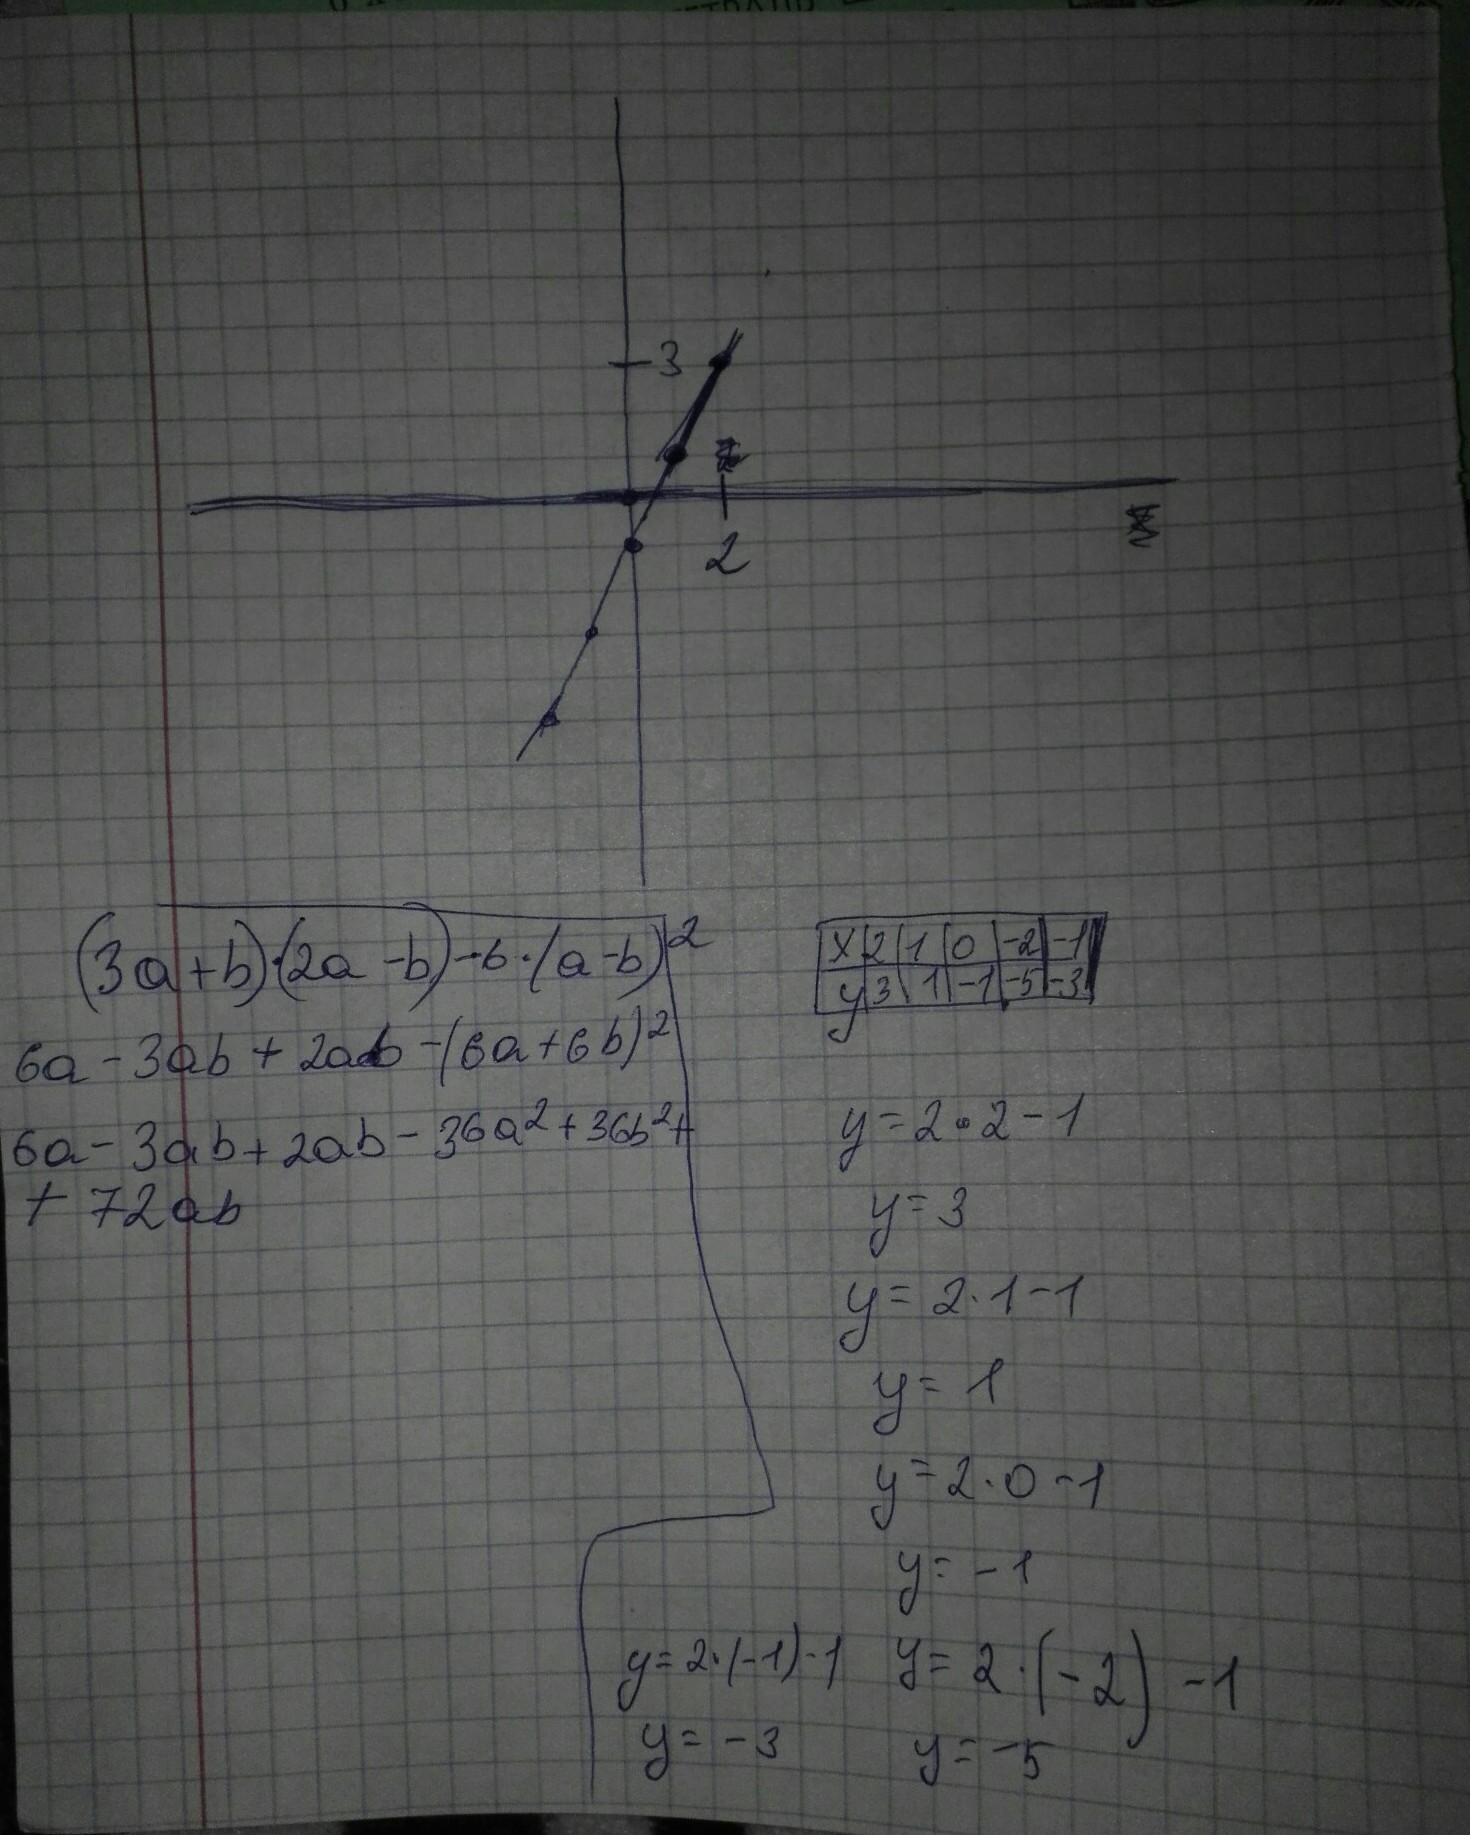 3
2
(3a+b)·(2a-b)-6·(a-b)²
6a-3ab+2ab-(6a+6b)²
6a-3ab+2ab-36a²+36b²+
+72ab
x 2 1 0 -2 -1
y 3 1 -1 -5 -3
y=2·2-1
y=3
y=2·1-1
y=1
y=2·0-1
y=-1
y=2·(-1)-1
y=-3
y=2·(-2)-1
y=-5